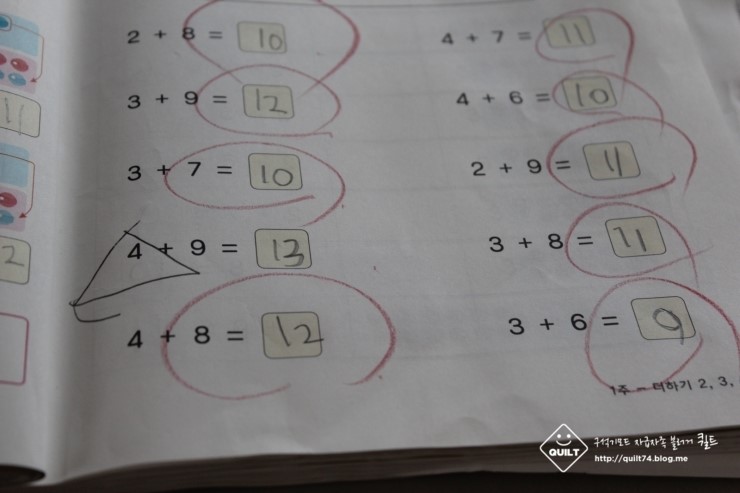 2 + 8 = 10
3 + 9 = 12
3 + 7 = 10
4 + 9 = 13
4 + 8 = 12
4 + 7 = 11
4 + 6 = 10
2 + 9 = 11
3 + 8 = 11
3 + 6 = 9
1주 - 더하기 2, 3,
11
2
QUILT
구석기모드 자급자족 블로거 퀼트
http://quilt74.blog.me